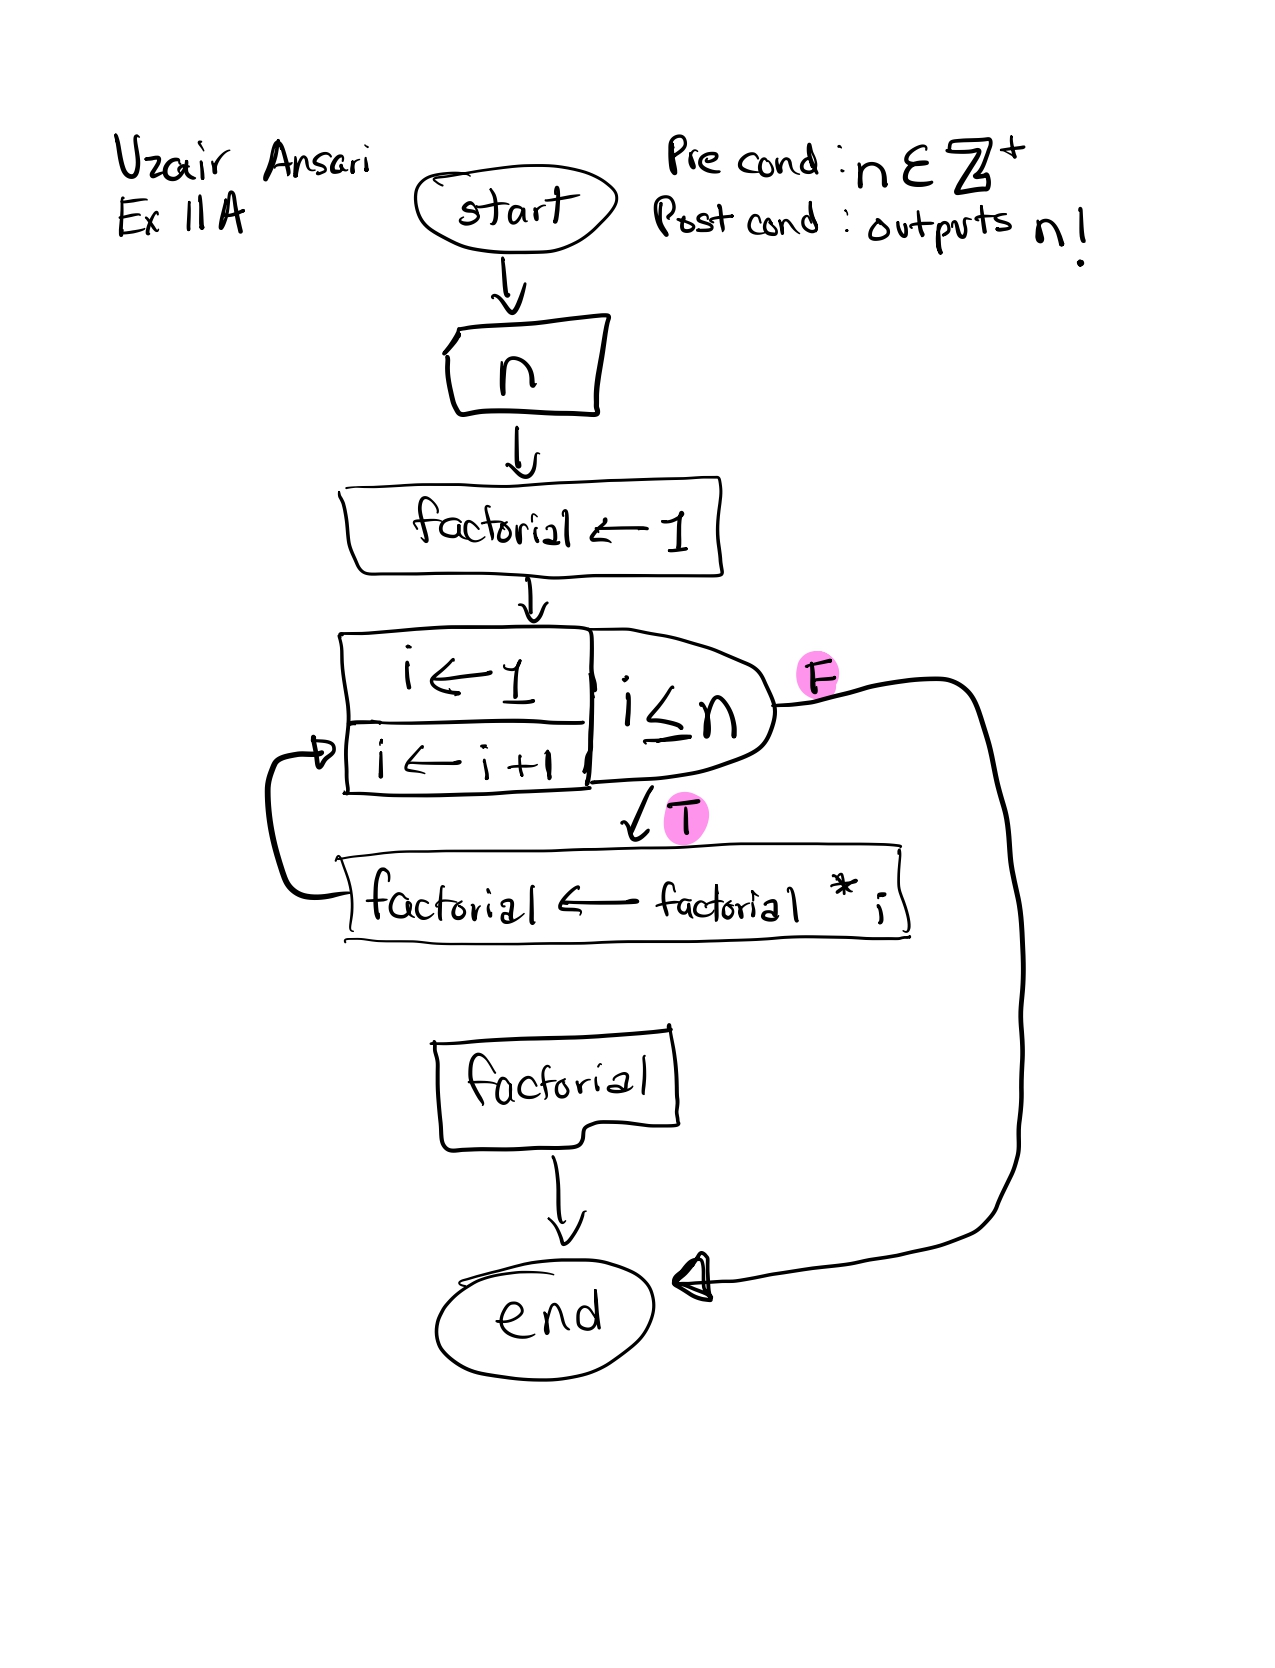 Uzair Ansari
Ex 11A
Pre cond : n ∈ ℤ⁺
Post cond : outputs n!
start
n
factorial ← 1
i ← 1
i ← i + 1
i ≤ n
F
T
factorial ← factorial * i
factorial
end